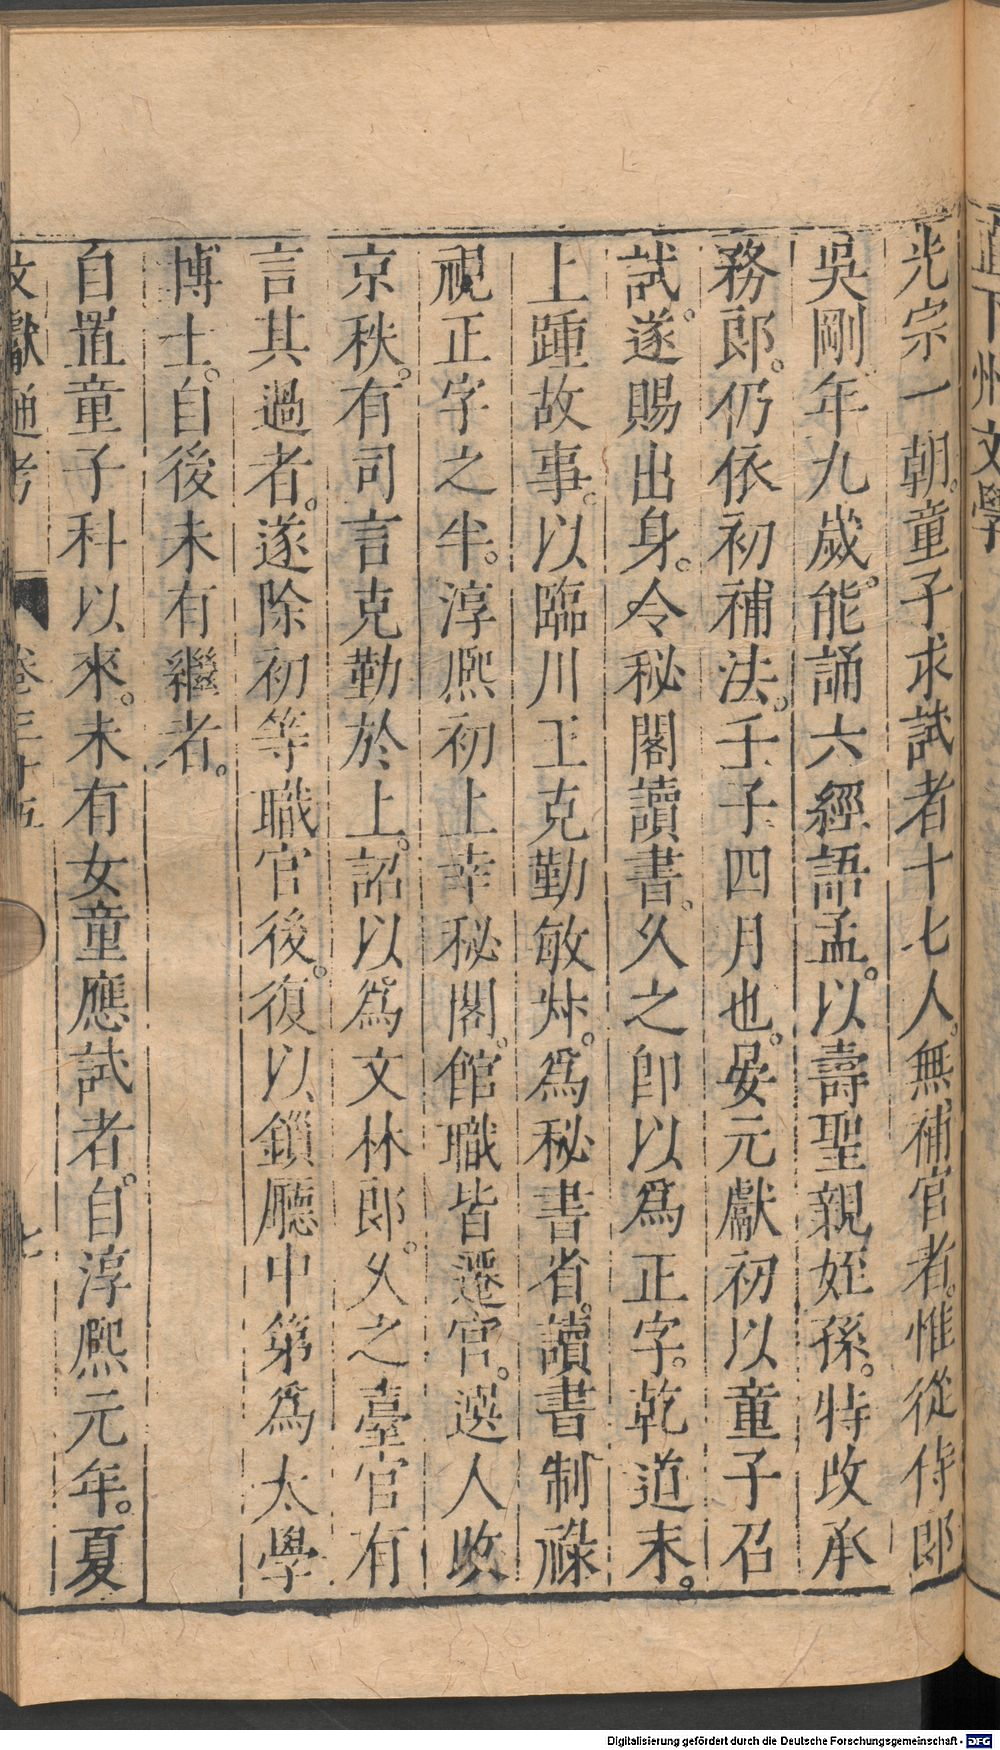 直下州文學
光宗一朝。童子求試者十七人。無補官者。惟從侍郎
吳剛年九歲。能誦六經語孟。以壽聖親姪孫。特改承
務郎。仍依初補法。壬子四月也。晏元獻初以童子召
試。遂賜出身。令秘閣讀書。久之卽以爲正字。乾道末。
上踵故事。以臨川王克勤敏妙。爲秘書省。讀書制祿
視正字之半。淳熙初上幸秘閣。館職皆遷官。選人改
京秩。有司言克勤於上。詔以爲文林郎。久之臺官有
言其過者。遂除初等職官後。復以鎖廳中第爲太學
博士。自後未有繼者。
自置童子科以來。未有女童應試者。自淳熙元年。夏
文獻通考 卷三十五 七
Digitalisierung gefördert durch die Deutsche Forschungsgemeinschaft - DFG